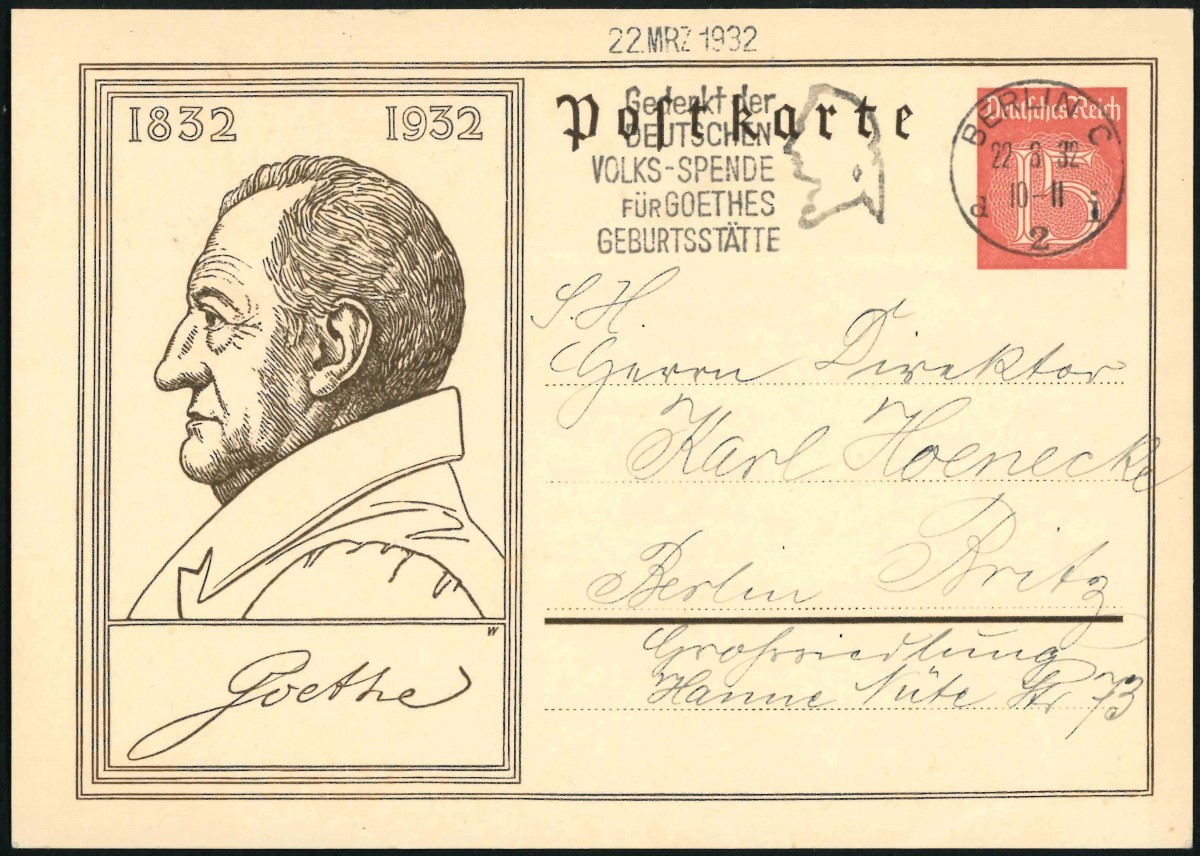 22.MRZ 1932
1832 1932
Postkarte
Gedenkt der
DEUTSCHEN
VOLKS-SPENDE
FÜR GOETHES
GEBURTSSTÄTTE
Deutsches Reich
15
BERLIN C
22 3 32
10-11
a i
2
S. H.
Herrn Direktor
Karl Hoenecke
Berlin Britz
Großsiedlung
Hanne Nüte Str 73
W
Goethe